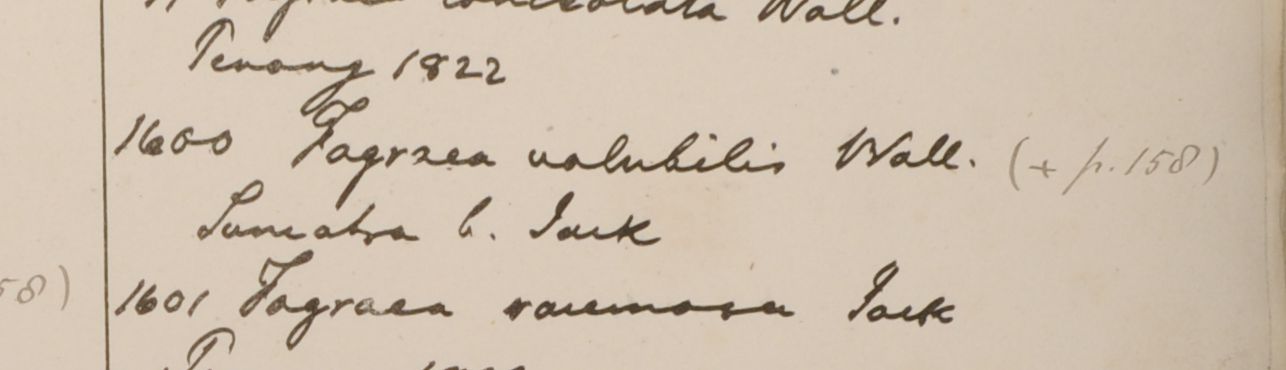 Wall.
Penang 1822
1600 Fagraea volubilis Wall. (+ p. 158)
Sumatra b. Jack
58)
1601 Fagraea racemosa Jack